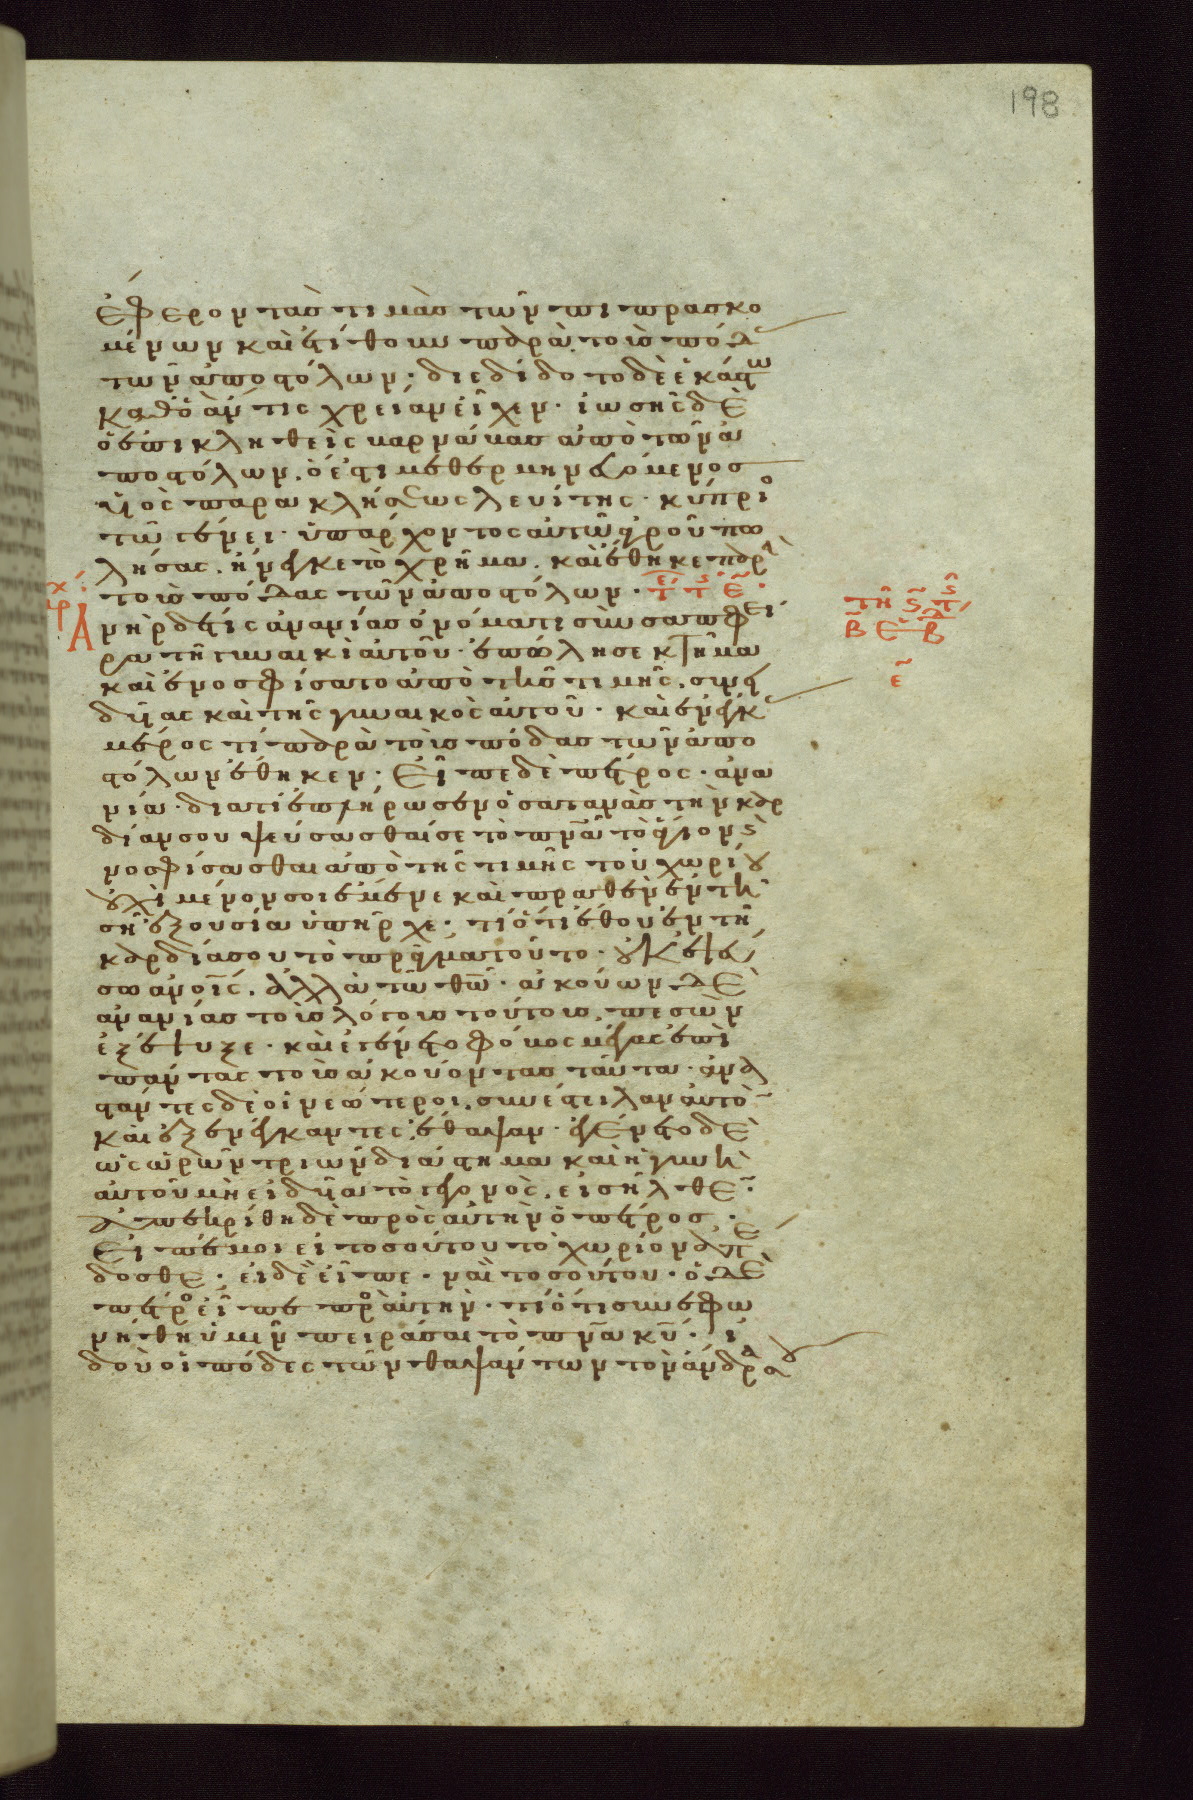 198
ἔφερον τὰσ τιμὰσ τῶν πιπρασκο
μένων καὶ ἐτίθουν παρὰ τοὺσ πόδ
τῶν ἀποστόλων· διεδίδοτο δὲ ἑκάστω
καθὸ ἄν τις χρείαν εἶχεν· ἰωσὴς δὲ
ὁ ἐπικληθεὶς βαρνάβασ ἀπὸ τῶν ἀ
ποστόλων, ὅ ἐστι μεθερμηνευόμενοσ
υἱὸς παρακλήσεως λευίτης· κύπριο
τῶ γένει· ὑπάρχοντος αὐτῶ ἀγροῦ πω
λήσας, ἤνεγκε τὸ χρῆμα, καὶ ἔθηκε παρὰ
τοὺσ πόδας τῶν ἀποστόλων·
Ἀνὴρ δέ τις ἀνανίασ ὀνόματι σὺν σαπφεί
ρα τῆ γυναικὶ αὐτοῦ· ἐπώλησε κτῆμα
καὶ ἐνοσφίσατο ἀπὸ τῆσ τιμῆς, συνει
δυίας καὶ τῆς γυναικὸς αὐτοῦ· καὶ ἐνέγκ
μέρος τί παρὰ τοὺσ πόδασ τῶν ἀπο
στόλων ἔθηκεν· Εἶπε δὲ πέτρος· ἀνα
νία· διατί ἐπλήρωσεν ὁ σατανᾶσ τὴν καρ
δίαν σου ψεύσασθαί σε τὸ πνᾶ τὸ ἅγιον ϗ
νοσφίσασθαι ἀπὸ τῆς τιμῆς τοῦ χωρίου
οὐχὶ μένον σοι ἔμενε καὶ πραθὲν ἐν τῆ
σῆ ἐξουσία ὑπῆρχε· τί ὅτι ἔθου ἐν τῆ
καρδία σου τὸ πρᾶγμα τοῦτο· οὐκ ἐψεύ
σω ἀνοις, ἀλλὰ τῶ θω· ἀκούων δὲ
ἀνανίασ τοὺσ λόγουσ τούτουσ, πεσὼν
ἐξέψυξε· καὶ ἐγένετο φόβος μέγας ἐπὶ
πάντας τοὺσ ἀκούοντασ ταῦτα· ἀνα
στάντες δὲ οἱ νεώτεροι, συνέστειλαν αὐτὸ
καὶ ἐξενέγκαντες, ἔθαψαν· ἐγένετο δὲ
ὡς ὡρῶν τριῶν διάστημα καὶ ἡ γυνὴ
αὐτοῦ μὴ εἰδυῖα τὸ γεγονὸς, εἰσῆλθε·
ἀπεκρίθη δὲ πρὸς αὐτὴν ὁ πέτροσ·
Εἰπέ μοι εἰ τοσούτου τὸ χωρίον ἀπέ
δοσθε· ἡ δὲ εἶπε· ναὶ τοσούτου· ὁ δὲ
πέτρο εἶπε προ αὐτὴν· τί ὅτι συνεφω
νήθη ὑμῖν πειράσαι τὸ πνᾶ κυ· ἰ
δοὺ οἱ πόδες τῶν θαψάντων τὸν ἄνδρα σου